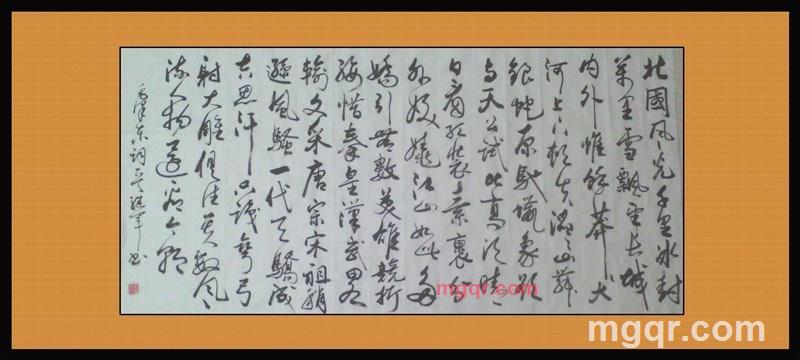 北國风光千里冰封
萬里雪飄望长城
内外惟餘莽莽大
河上下顿失滔滔山舞
銀蛇原馳蠟象欲
与天公试比高须晴
日看红装素裹分
外妖嬈江山如此多
嬌引無數英雄競折
腰惜秦皇漢武略
輸文采唐宗宋祖稍
遜風騷一代天驕成
吉思汗只識彎弓
射大雕俱往矣數风
流人物還看今朝
毛澤东詞书
mgqr.com
mgqr.com